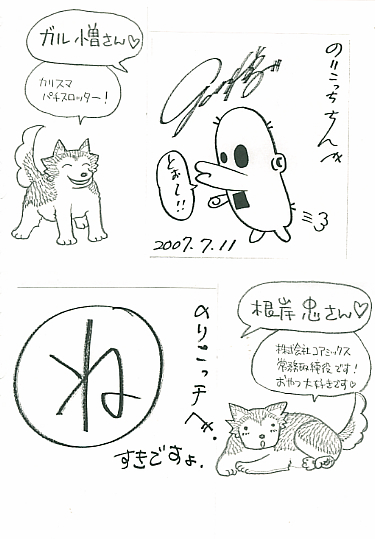 ガル憎さん♡
カリスマ
パチスロッター！
のりこっちさんへ
とぉ〜!!
2007.7.11
根岸忠さん♡
株式会社コアミックス
常務取締役です！
おやつ大好きです♡
のりこっ子へ
ね
すきですよ.